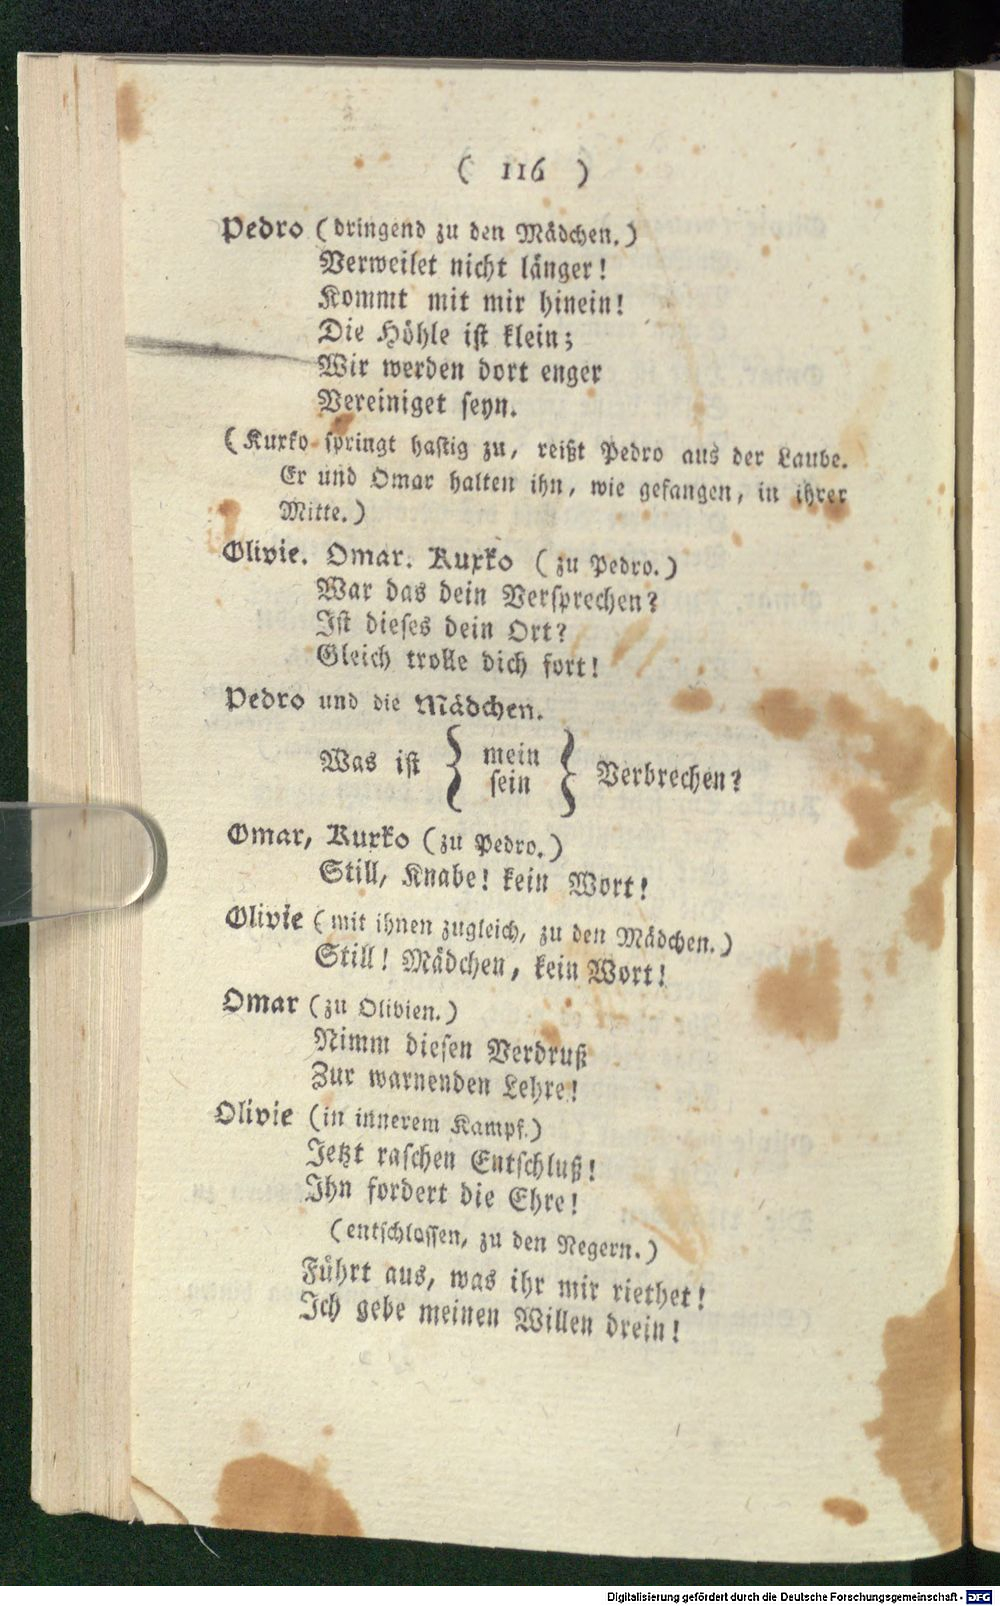 ( 116 )
Pedro (dringend zu den Mädchen.)
Verweilet nicht länger!
Kommt mit mir hinein!
Die Höhle ist klein;
Wir werden dort enger
Vereiniget seyn.
(Kurko springt hastig zu, reißt Pedro aus der Laube.
Er und Omar halten ihn, wie gefangen, in ihrer
Mitte.)
Olivie. Omar. Kurko (zu Pedro.)
War das dein Versprechen?
Ist dieses dein Ort?
Gleich trolle dich fort!
Pedro und die Mädchen.
Was ist { mein sein } Verbrechen?
Omar, Kurko (zu Pedro.)
Still, Knabe! kein Wort!
Olivie (mit ihnen zugleich, zu den Mädchen.)
Still! Mädchen, kein Wort!
Omar (zu Olivien.)
Nimm diesen Verdruß
Zur warnenden Lehre!
Olivie (in innerem Kampf.)
Jetzt raschen Entschluß!
Ihn fordert die Ehre!
(entschlossen, zu den Negern.)
Führt aus, was ihr mir riethet!
Ich gebe meinen Willen drein!
Digitalisierung gefördert durch die Deutsche Forschungsgemeinschaft - DFG